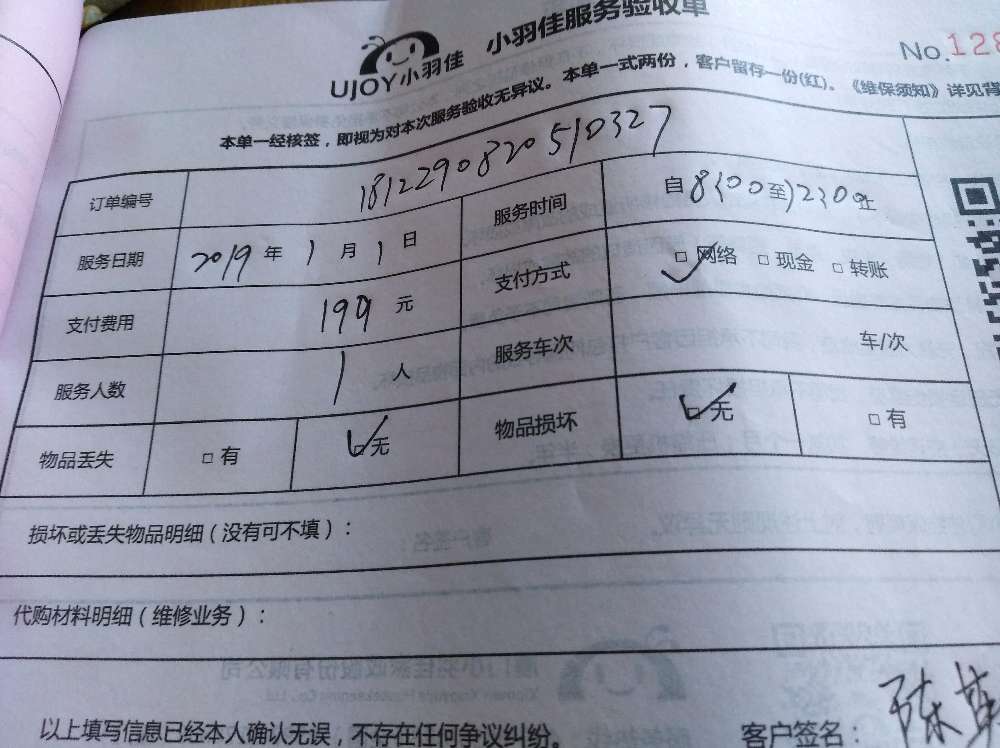 UJOY小羽佳 小羽佳服务验收单
No.128
本单一经核签，即视为对本次服务验收无异议。本单一式两份，客户留存一份(红)。《维保须知》详见背
订单编号 181229082051 0327
服务日期 2019 年 1 月 1 日 服务时间 自 8:00 至 12:00 止
支付费用 199 元 支付方式 □ 网络 □ 现金 □ 转账
服务人数 1 人 服务车次 车/次
物品丢失 □ 有 □ 无 物品损坏 □ 无 □ 有
损坏或丢失物品明细（没有可不填）：
代购材料明细（维修业务）：
以上填写信息已经本人确认无误，不存在任何争议纠纷。 客户签名： 陈